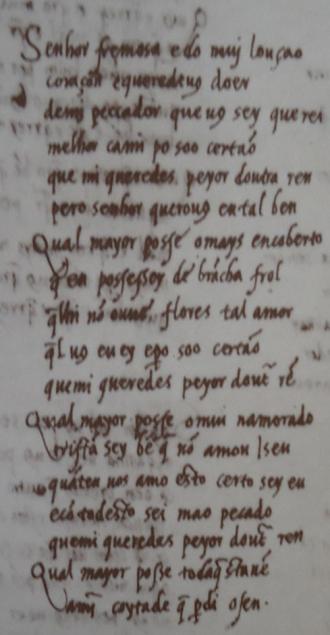 Senhor fremosa e do mui louçao
coraçon e queredeu9 doer
demi peccador que u9 sey querer
melhor cami po soo certaõ
que mi queredes peyor doutra ren
pero senhor querou9 eu tal ben
Qual mayor posse o mays encoberto
q̃ eu posse sey de brãcha frol
q̃lhi nõ ouue flores tal amor
q̃l u9 eu ey epo soo certaõ
que mi queredes peyor dout̃ rẽ
Qual mayor posse o mui namorado
tristã sey bẽ q̃ nõ amou Iseu
quãteu uos amo esto certo sey eu
e cõ todesto sei mao pecado
que mi queredes peyor dout̃ ren
Qual mayor posse todaq̃st auẽ
a mĩ coytade q̃ pdi o sen.